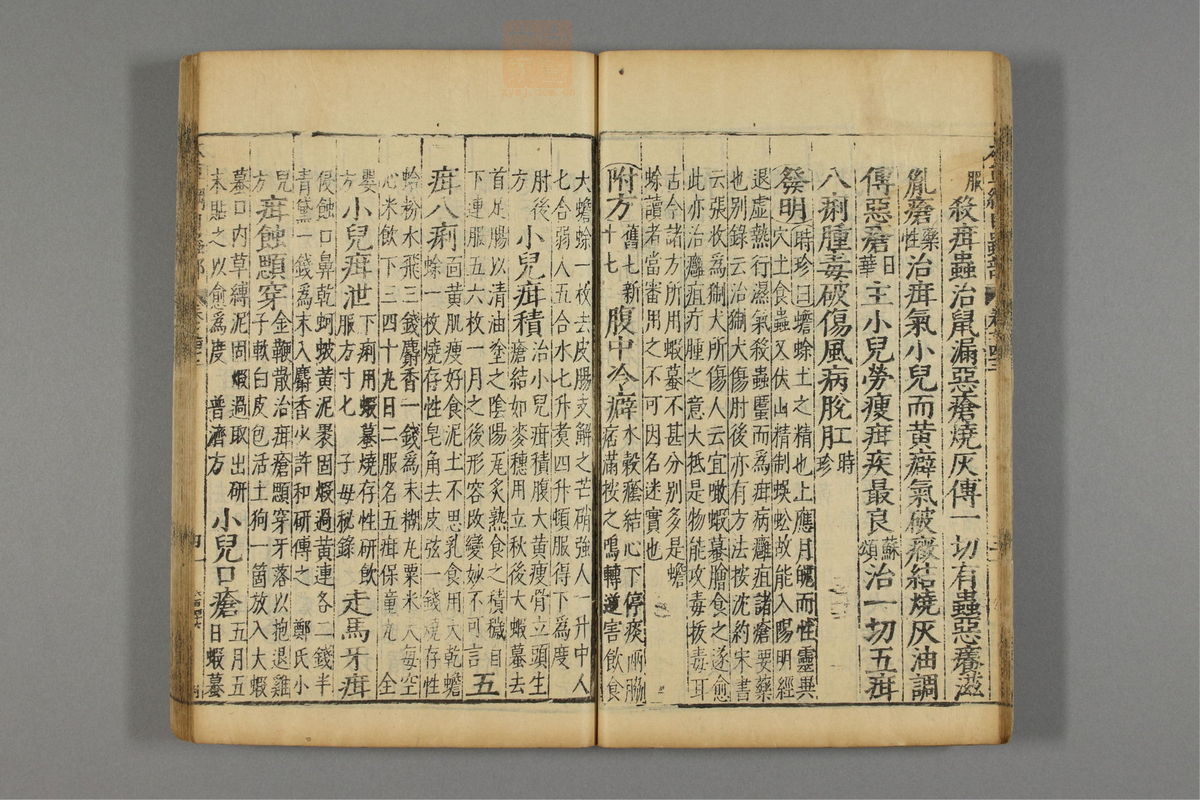 服殺疳蟲治鼠漏惡瘡燒灰傅一切有蟲惡癢滋
胤瘡藥性治疳氣小兒面黃癖氣破癥結燒灰油調
傅惡瘡日華主小兒勞瘦疳疾最良蘇頌治一切五疳
八痢腫毒破傷風病脫肛時珍
發明時珍曰蟾蜍土之精也上應月魄而性靈異
穴土食蟲又伏山精制蜈蚣故能入陽明經
退虛熱行濕氣殺蟲䘌而為疳病癰疽諸瘡要藥
也別錄云治猘犬傷肘後亦有方法按沈約宋書
云張收為猘犬所傷人云宜噉蝦蟇膾食之遂愈
此亦治癰疽疔腫之意大抵是物能攻毒拔毒耳
古今諸方所用蝦蟇不甚分別多是蟾
蜍讀者當審用之不可因名迷實也
附方舊七新十七腹中冷癖水穀癊結心下停痰兩脇痞滿按之鳴轉逆害飲食
大蟾蜍一枚去皮腸支解之芒硝強人一升中人
七合弱人五合水七升煮四升頓服得下為度
肘後方小兒疳積治小兒疳積腹大黃瘦骨立頭生瘡結如麥穗用立秋後大蝦蟇去
首足腸以清油塗之陰陽瓦炙熟食之積穢自
下連服五六枚一月之後形容改變妙不可言五
疳八痢面黃肌瘦好食泥土不思乳食用大乾蟾蜍一枚燒存性皂角去皮弦一錢燒存性
蛤粉水飛三錢麝香一錢為末糊丸粟米大每空
心米飲下三四十丸日二服名五疳保童丸全
嬰方小兒疳泄下痢用蝦蟇燒存性研飲服方寸匕子母秘錄走馬牙疳
侵蝕口鼻乾蚵蚾黃泥裹固煅過黃連各二錢半
青黛一錢為末入麝香少許和研傅之鄭氏小
兒方疳蝕顋穿金鞭散治疳瘡顋穿牙落以抱退雞子軟白皮包活土狗一箇放入大蝦
蟇口內草縛泥固煅過取出研末貼之以愈為度普濟方小兒口瘡五月五日蝦蟇